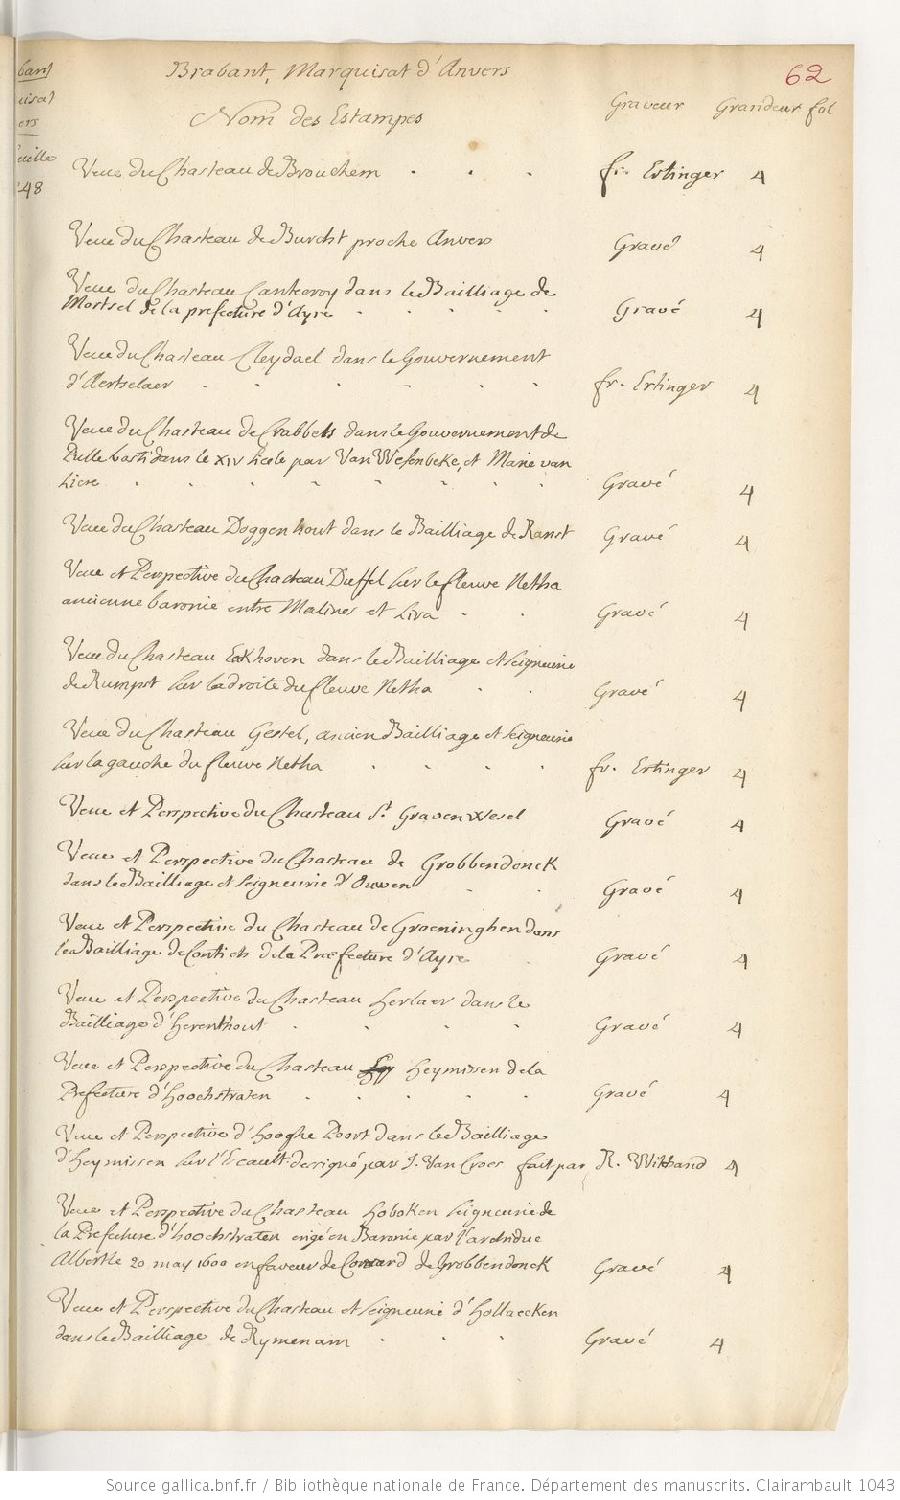 Brabant, Marquisat d'Anvers
62
Nom des Estampes Graveur Grandeur fol
Veue du Chasteau de Brouchem fr. Ertinger 4
48
Veue du Chasteau de Burcht proche Anvers Gravé 4
Veue du Chasteau Cantecroy dans le Bailliage de
Mortsel de la prefecture d'Ayre Gravé 4
Veue du Chasteau Cleydael dans le Gouvernement
d'Aertselaer fr. Ertinger 4
Veue du Chasteau de Crabbels dans le Gouvernement de
Pulle basti dans le XIV siecle par Van Wesenbeke, et Marie van
Liere Gravé 4
Veue du Chasteau Doggenhout dans le Bailliage de Ranst Gravé 4
Veue et Perspective du Chasteau Duffel sur le fleuve Netha
ancienne baronie entre Malines et Lira Gravé 4
Veue du Chasteau Eekhoven dans le Bailliage et seigneurie
de Rumpst sur la droite du fleuve Netha Gravé 4
Veue du Chasteau Gestel, ancien Bailliage et seigneurie
sur la gauche du fleuve Netha fr. Ertinger 4
Veue et Perspective du Chasteau St Graven Wesel Gravé 4
Veue et Perspective du Chasteau de Grobbendonck
dans le Bailliage et seigneurie d'Ouwen Gravé 4
Veue et Perspective du Chasteau de Groeninghen dans
le Bailliage de Contich de la Præfecture d'Ayre Gravé 4
Veue et Perspective du Chasteau Herlaer dans le
Bailliage d'Herenthout Gravé 4
Veue et Perspective du Chasteau Heymissen de la
Prefecture d'Hoochstraten Gravé 4
Veue et Perspective d'Hooghe Poort dans le Bailliage
d'Heymissen sur l'Escault designé par J. Van Croes fait par R. Withand 4
Veue et Perspective du Chasteau Hoboken seigneurie de
la Prefecture d'hoochstraten erigé en Baronie par l'archiduc
Alberthe 20 may 1600 en faveur de Conrard de Grobbendonck Gravé 4
Veue et Perspective du Chasteau et seigneurie d'Hollaecken
dans le Bailliage de Rymenam Gravé 4
Source gallica.bnf.fr / Bibliothèque nationale de France. Département des manuscrits. Clairambault 1043